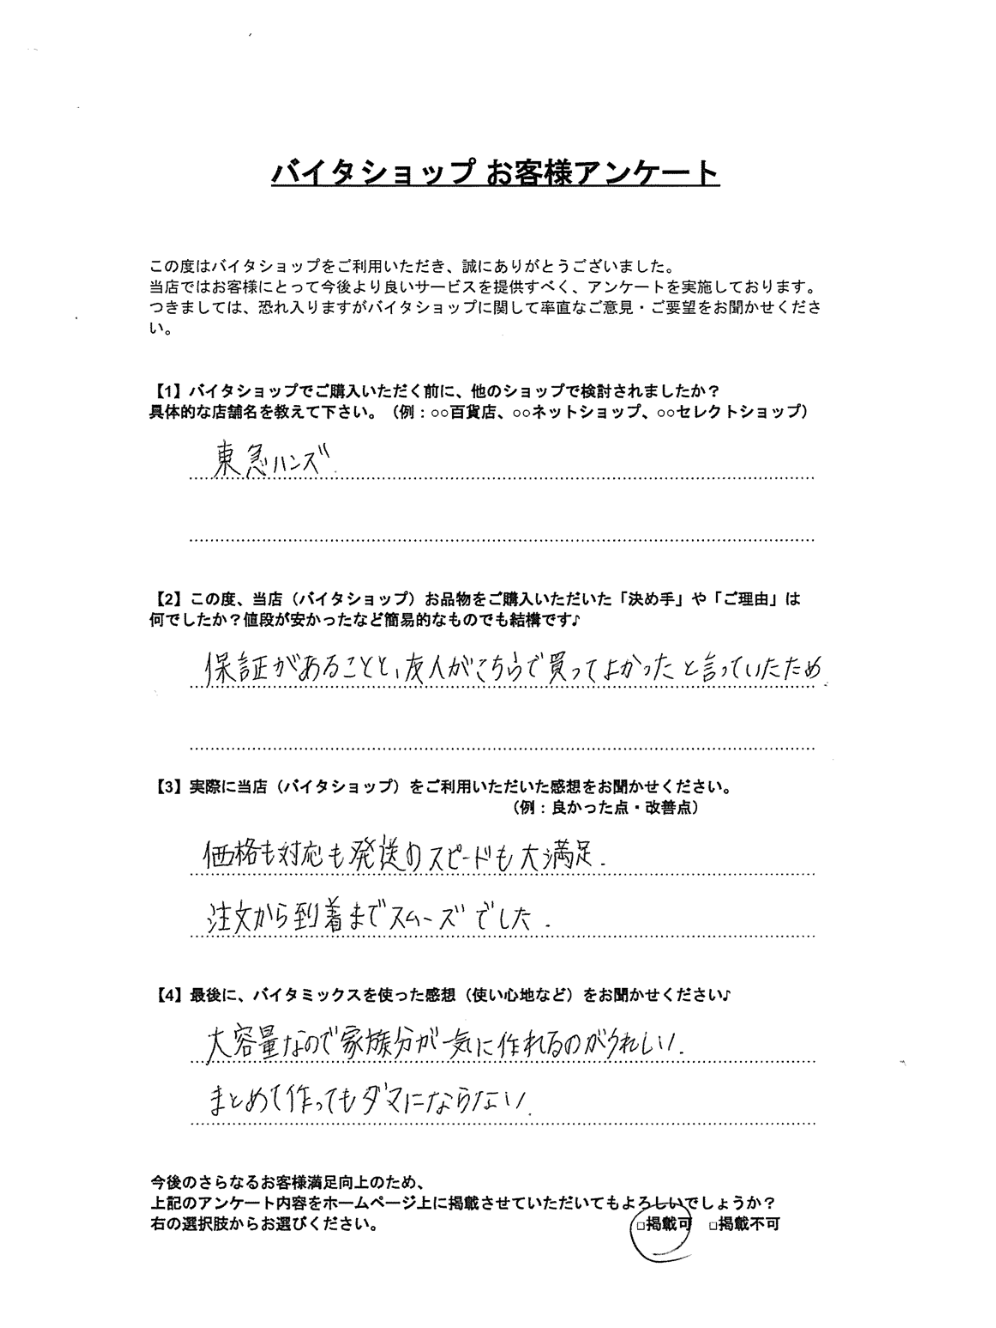 バイタショップ お客様アンケート
この度はバイタショップをご利用いただき、誠にありがとうございました。
当店ではお客様にとって今後より良いサービスを提供すべく、アンケートを実施しております。
つきましては、恐れ入りますがバイタショップに関して率直なご意見・ご要望をお聞かせくださ
い。
【1】バイタショップでご購入いただく前に、他のショップで検討されましたか？
具体的な店舗名を教えて下さい。（例：○○百貨店、○○ネットショップ、○○セレクトショップ）
東急ハンズ.
【2】この度、当店（バイタショップ）お品物をご購入いただいた「決め手」や「ご理由」は
何でしたか？値段が安かったなど簡易的なものでも結構です♪
保証があることと、友人がこちらで買ってよかったと言っていたため.
【3】実際に当店（バイタショップ）をご利用いただいた感想をお聞かせください。
（例：良かった点・改善点）
価格も対応も発送のスピードも大満足.
注文から到着までスムーズでした.
【4】最後に、バイタミックスを使った感想（使い心地など）をお聞かせください♪
大容量なので家族分が一気に作れるのがうれしい.
まとめて作ってもダマにならない.
今後のさらなるお客様満足向上のため、
上記のアンケート内容をホームページ上に掲載させていただいてもよろしいでしょうか？
右の選択肢からお選びください。 □掲載可 □掲載不可